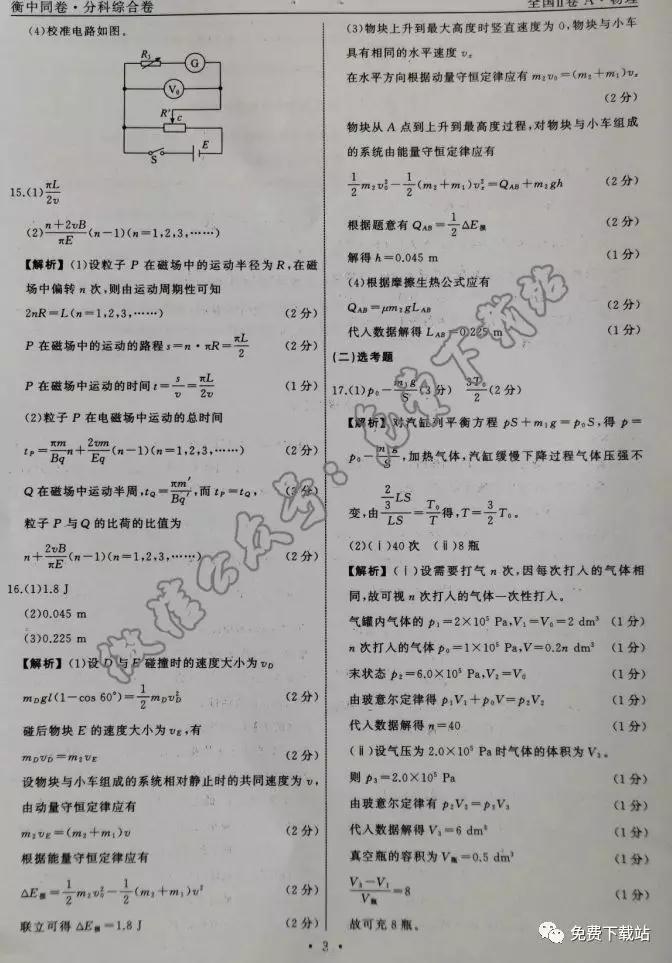 衡中同卷·分科综合卷
全国Ⅱ卷 A·物理
(4)校准电路如图。
R₁ G
V₀
R′ c
S E
15.(1)πL/2v
(2)n+2vB/πE(n-1)(n=1,2,3,……)
【解析】(1)设粒子 P 在磁场中的运动半径为 R,在磁
场中偏转 n 次,则由运动周期性可知
2nR=L(n=1,2,3,……) (2分)
P 在磁场中的运动的路程 s=n·πR=πL/2 (2分)
P 在磁场中运动的时间 t=s/v=πL/2v (1分)
(2)粒子 P 在电磁场中运动的总时间
tP=πm/Bq n+2vm/Eq(n-1)(n=1,2,3,……) (2分)
Q 在磁场中运动半周,tQ=πm′/Bq′,而 tP=tQ, (3分)
粒子 P 与 Q 的比荷的比值为
n+2vB/πE(n-1)(n=1,2,3,……) (2分)
16.(1)1.8 J
(2)0.045 m
(3)0.225 m
【解析】(1)设 D 与 E 碰撞时的速度大小为 vD
mDgl(1-cos 60°)=1/2 mDvD² (2分)
碰后物块 E 的速度大小为 vE,有
mDvD=m₂vE (2分)
设物块与小车组成的系统相对静止时的共同速度为 v,
由动量守恒定律应有
m₂vE=(m₂+m₁)v (2分)
根据能量守恒定律应有
ΔE损=1/2 m₂v₀²-1/2(m₂+m₁)v² (2分)
联立可得 ΔE损=1.8 J (2分)
(3)物块上升到最大高度时竖直速度为 0,物块与小车
具有相同的水平速度 vx
在水平方向根据动量守恒定律应有 m₂v₀=(m₂+m₁)vx
(2分)
物块从 A 点到上升到最高度过程,对物块与小车组成
的系统由能量守恒定律应有
1/2 m₂v₀²-1/2(m₂+m₁)vx²=QAB+m₂gh (2分)
根据题意有 QAB=1/2 ΔE损 (2分)
解得 h=0.045 m (1分)
(4)根据摩擦生热公式应有
QAB=μm₂gLAB (2分)
代入数据解得 LAB=0.225 m (1分)
(二)选考题
17.(1)p₀-m₁g/S(3分) 3T₀/2(2分)
【解析】对汽缸列平衡方程 pS+m₁g=p₀S,得 p=
p₀-m₁g/S,加热气体,汽缸缓慢下降过程气体压强不
变,由 2/3 LS/LS=T₀/T 得,T=3/2 T₀。
(2)(ⅰ)40 次 (ⅱ)8 瓶
【解析】(ⅰ)设需要打气 n 次,因每次打入的气体相
同,故可视 n 次打入的气体一次性打入。
气罐内气体的 p₁=2×10⁵ Pa,V₁=V₀=2 dm³ (1分)
n 次打入的气体 p₀=1×10⁵ Pa,V=0.2n dm³ (1分)
末状态 p₂=6.0×10⁵ Pa,V₂=V₀ (1分)
由玻意尔定律得 p₁V₁+p₀V=p₂V₂ (1分)
代入数据解得 n=40 (1分)
(ⅱ)设气压为 2.0×10⁵ Pa 时气体的体积为 V₃。
则 p₃=2.0×10⁵ Pa (1分)
由玻意尔定律有 p₂V₂=p₃V₃ (1分)
代入数据解得 V₃=6 dm³ (1分)
真空瓶的容积为 V瓶=0.5 dm³ (1分)
V₃-V₁/V瓶=8 (1分)
故可充 8 瓶。
·3·
免费下载站